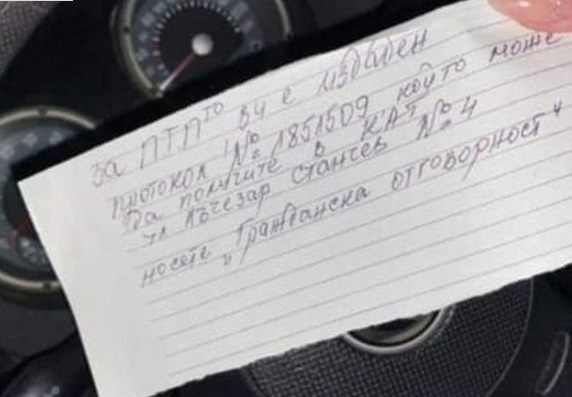 За ПТПто ви е издаден
протокол № 1851509, който може
да получите в КАТ
ул Лъчезар Станчев № 4
носете "Гражданска отговорност"